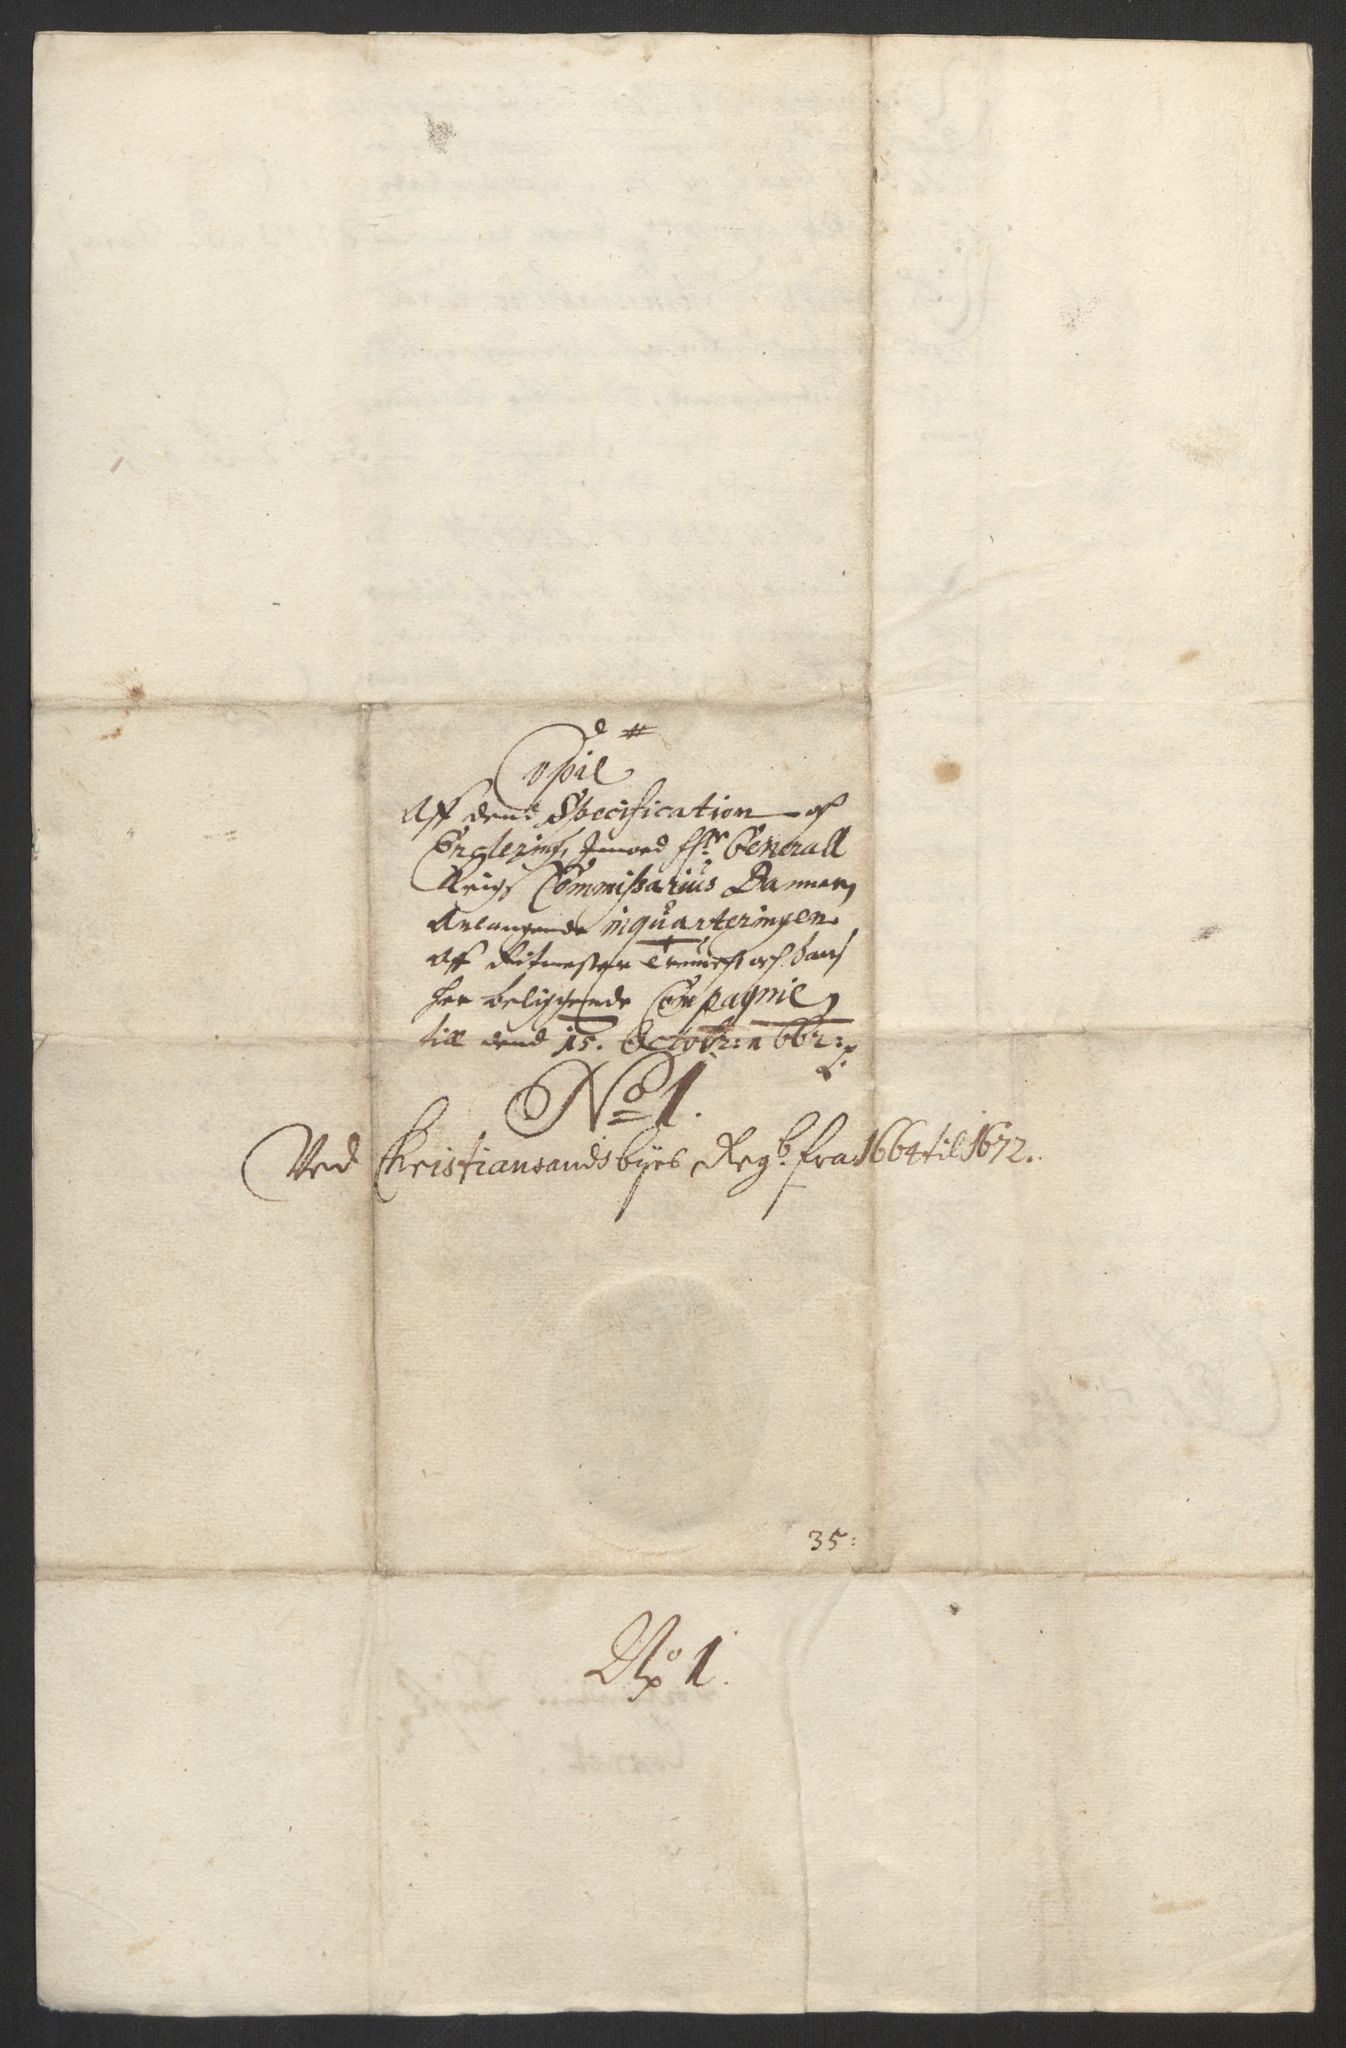 Copie
Aff dend Specification och
hr. Generall
Krigs Commissarius
Anlangende inquarteringen
Aff Ritmester och hans
her beliggende Compagnie
till dend 15. Octobr: 1662:
No 1.
Ved Christiansands byes Regb. fra 1664 til 1672.
35:
No 1.